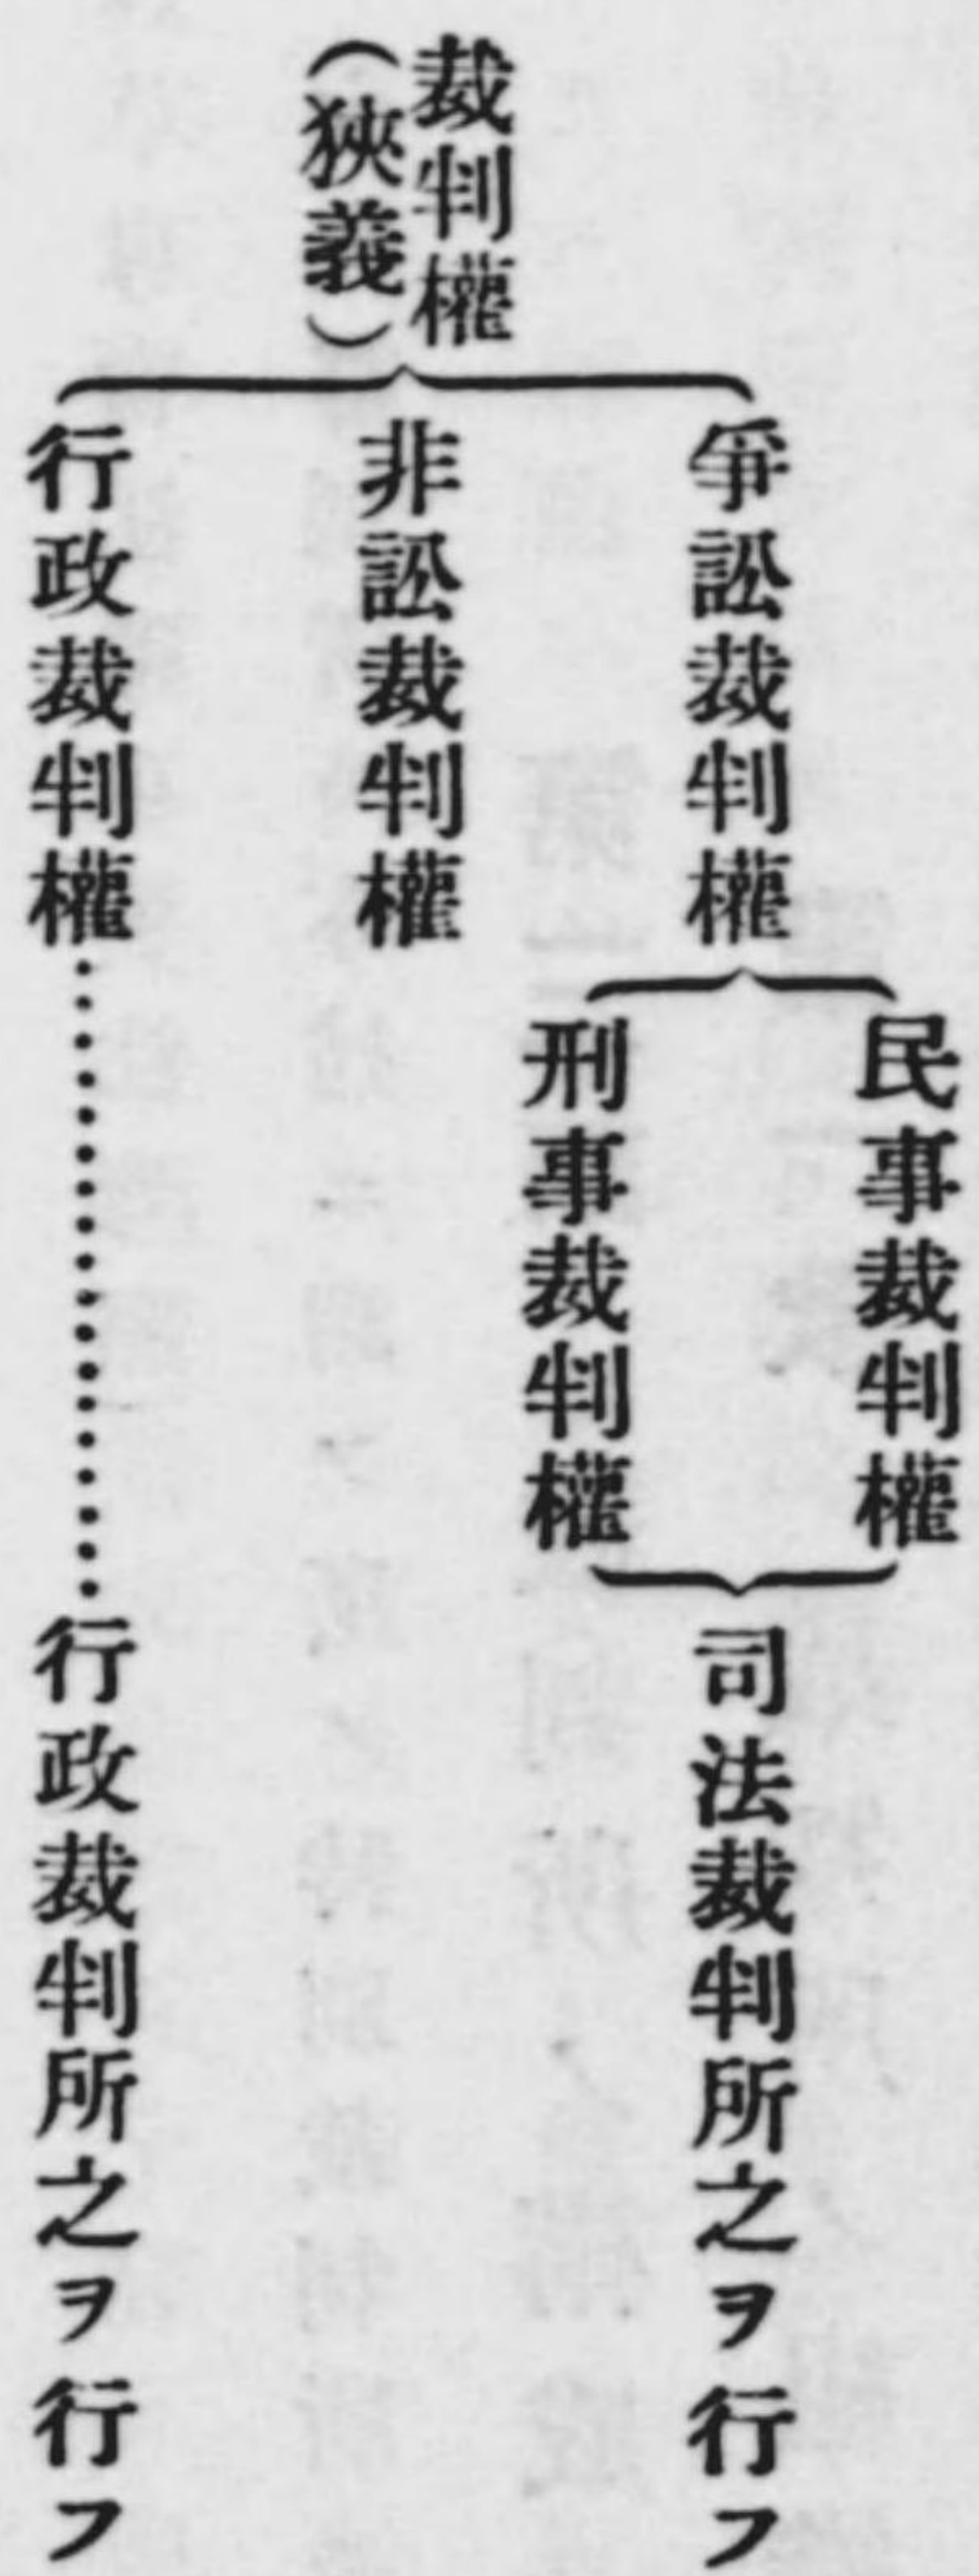 裁判權
(狹義)
爭訟裁判權
民事裁判權
刑事裁判權
司法裁判所之ヲ行フ
非訟裁判權
行政裁判權………………行政裁判所之ヲ行フ